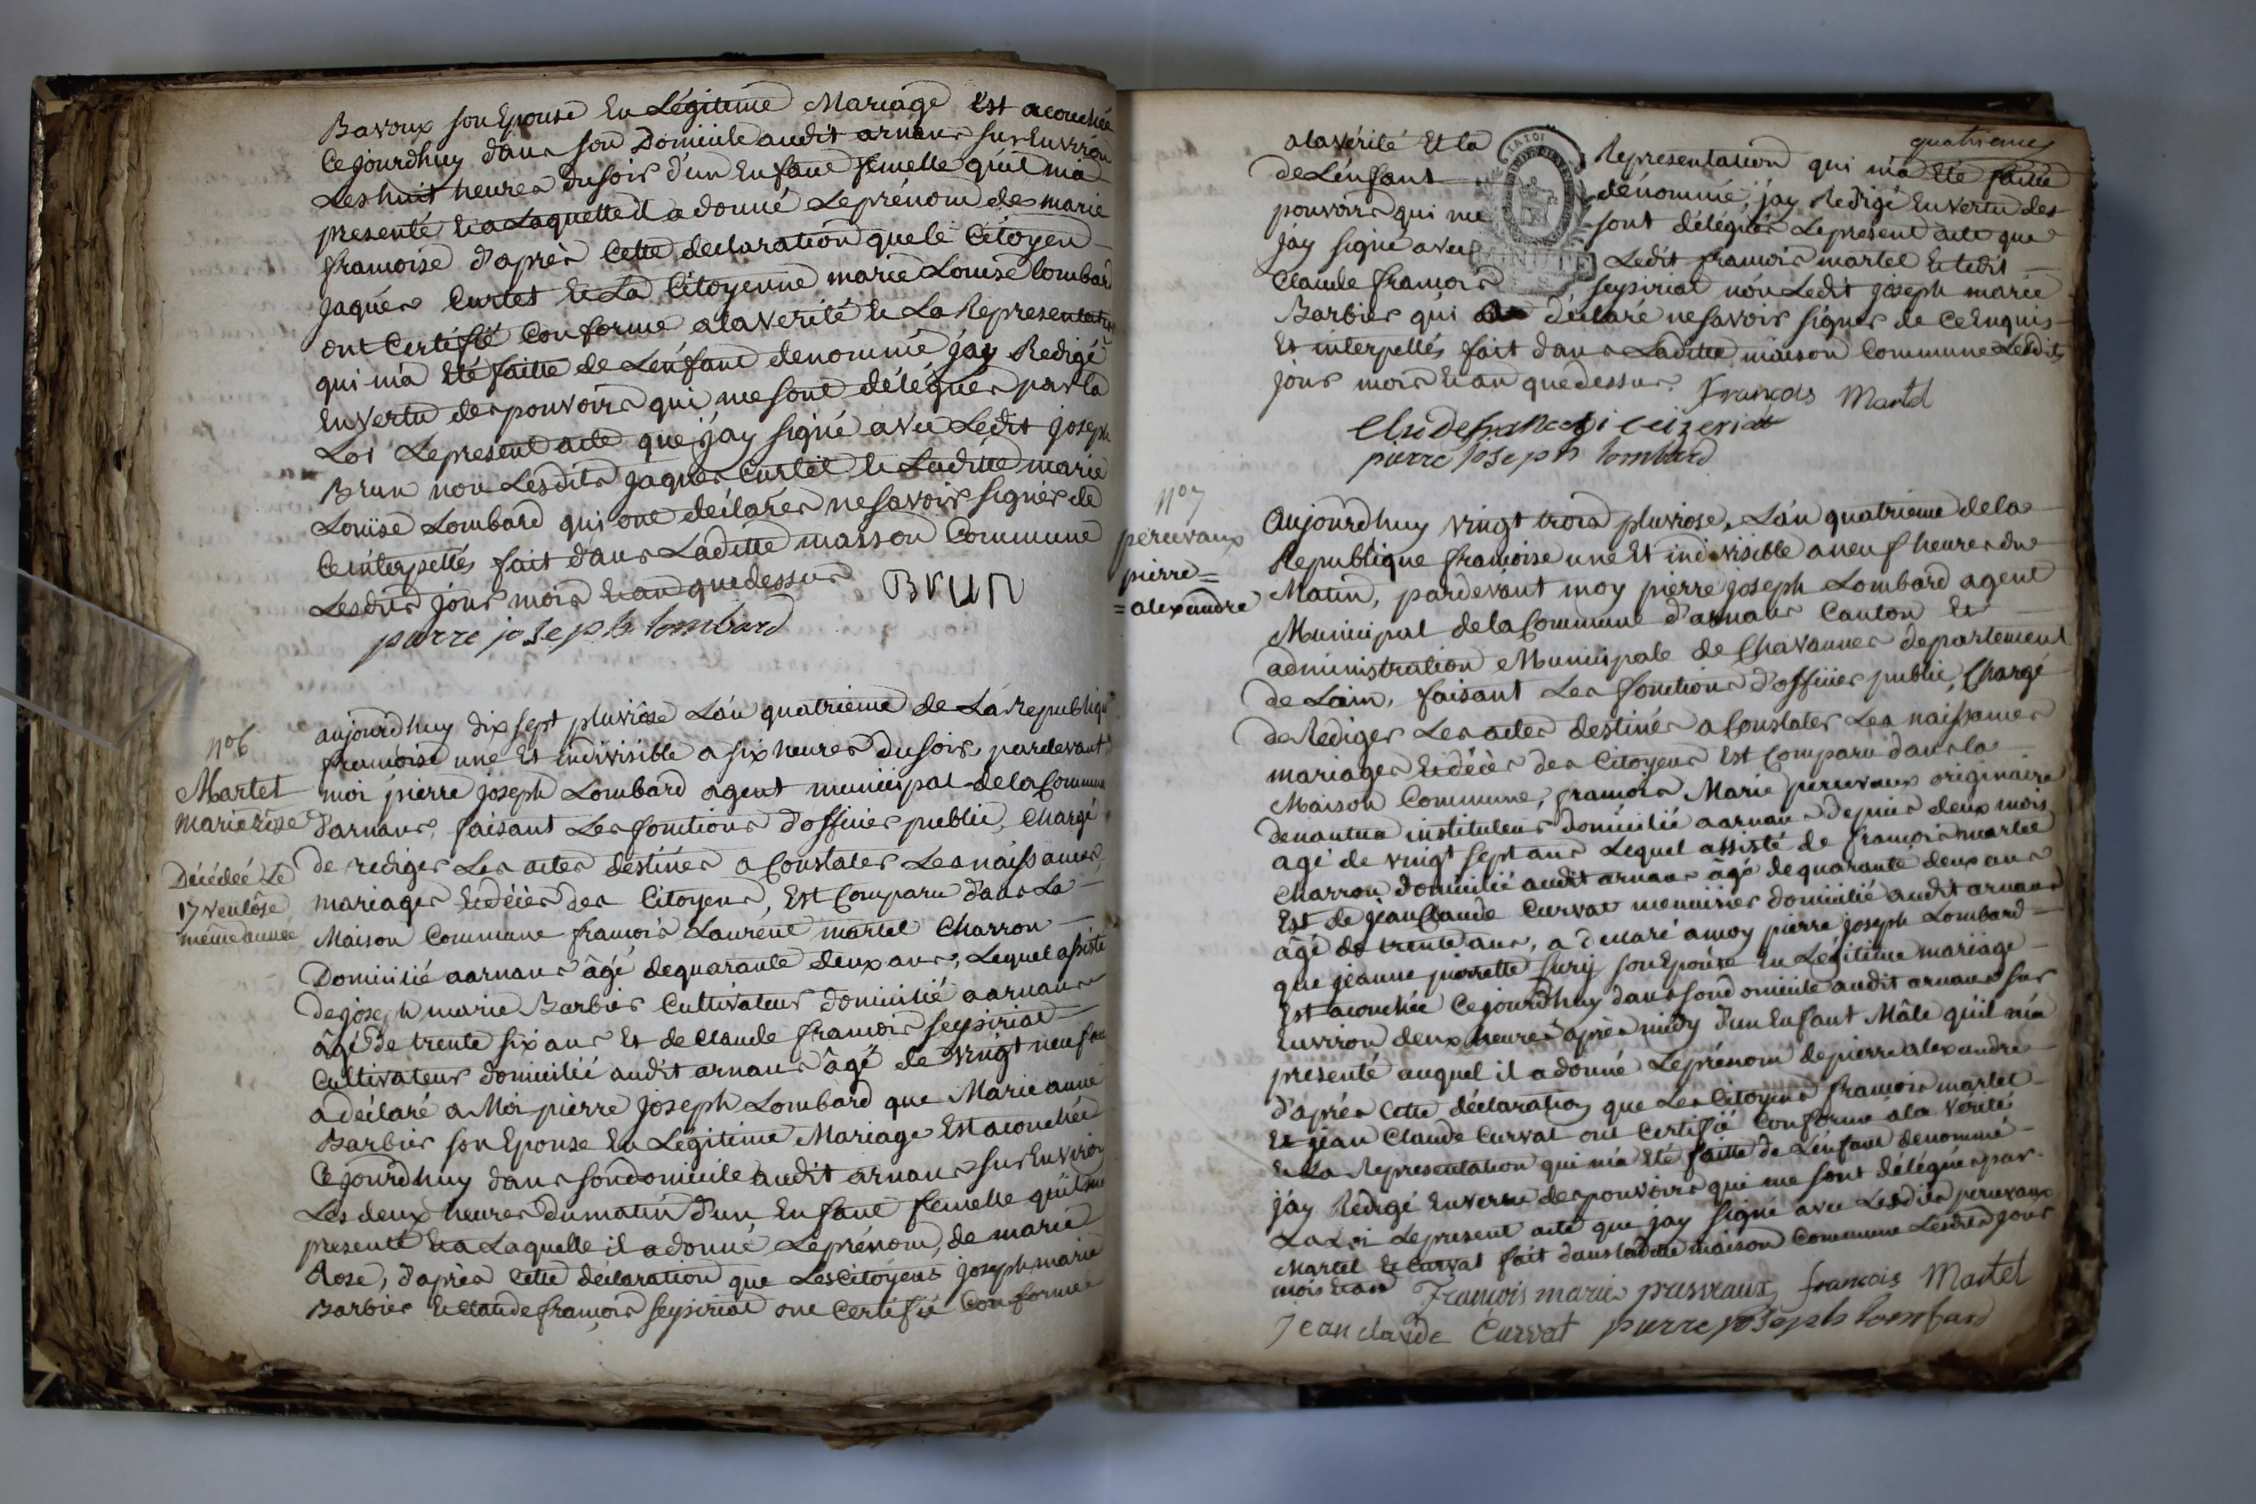 Bavoux son Epouse En Légitime Mariage Est acouchée
Cejourdhuy dans son Domicile audit arnans sur Environ
Les huit heures du soir d'un Enfant femelle qu'il m'a
presenté Et a Laquelle il a donné Le prénom de marie
francoise d'après Cette declaration que le Citoyen
Jaques Curtet Et La Citoyenne marie Louise lombard
ont Certifié Conforme a la Verité Et La Representation
qui m'a Eté faitte de L'enfant denommé jay Redigé
En vertu des pouvoirs qui me sont délégués par la
Loi Le present acte que j'ay signé avec Ledit joseph
Brun non Lesdits Jaques Curtet Et Laditte marie
Louise Lombard qui ont déclarés ne savoir signer de
Ce interpellés fait dans Laditte maison Commune
Lesdits jour mois Et an que dessus Brun
pierre joseph lombard
n° 6
Martel
Marie rose
Décédée Le
17 ventôse
même année
aujourdhuy dix sept pluviôse L'an quatrieme de La Republique
francoise une Et indivisible a six heures du soir, pardevant
moi pierre joseph Lombard agent municipal de la Commune
d'arnans, faisant Les fonctions d'officier public, Chargé
de rediger Les actes destinés a Constater Les naissances,
mariages Et décès des Citoyens, Est Comparu dans La
Maison Commune francois Laurent martel Charron
Domicilié a arnans âgé de quarante deux ans, Lequel assisté
de joseph marie Barbier Cultivateur domicilié a arnans
âgé de trente six ans Et de Claude francois seysiriat
Cultivateur domicilié audit arnans âgé de vingt neuf ans
a déclaré a Moi pierre Joseph Lombard que Marie anne
Barbier son Epouse En Légitime Mariage Est acouchée
Cejourdhuy dans son domicile audit arnans sur Environ
Les deux heures du matin d'un Enfant femelle qu'il m'a
presenté Et a Laquelle il a donné Le prénom, de marie
Rose, d'après Cette déclaration que Les Citoyens joseph marie
Barbier Et Claude françois seysiriat ont Certifié Conforme
quatrieme
a la vérité Et la Representation qui m'a Eté faitte
de L'enfant dénommé, j'ay Redigé En vertu des
pouvoirs qui me sont délégués Le present acte que
j'ay signé avec Ledit francois martel Et ledit
Claude francois seysiriat non Ledit joseph marie
Barbier qui a déclaré ne savoir signer de Ce Enquis
Et interpellés fait dans Laditte maison Commune Lesdits
jour mois Et an que dessus. François Martel
Claude francoi ceizeriat
pierre joseph lombard
n° 7
perevaux
pierre =
= alexandre
Aujourdhuy vingt trois pluviose, L'an quatrieme de la
Republique francoise une Et indivisible a neuf heures du
Matin, pardevant moy pierre joseph Lombard agent
Municipal de la Commune d'arnans Canton Et
administration Municipale de Chavannes departement
de Lain, faisant Les fonctions d'officier public, Chargé
de Rediger Les actes destinés a Constater Les naissances
mariages Et décès des Citoyens Est Comparu dans la
Maison Commune, francois Marie perrevaux originaire
de nantua instituteur domicilié a arnans depuis deux mois
age de vingt sept ans Lequel assisté de francois martel
Charron domicilié audit arnans âgé de quarante deux ans
Est de jean Claude Curvat menuisier domicilié audit arnans
âgé de trente ans, a declaré a moy pierre joseph Lombard
que jeanne pierrette sury son Epouse En Légitime mariage
Est acouchée Cejourdhuy dans son domicile audit arnans sur
Environ deux heures après midy d'un Enfant Mâle qu'il m'a
presenté auquel il a donné Le prénom de pierre alexandre
d'après Cette déclaration que Les Citoyens francois martel
Et jean Claude Curvat ont Certifié Conforme a la Vérité
Et La Representation qui m'a Eté faitte de L'enfant denommé
j'ay Redigé En vertu des pouvoirs qui me sont délégués par
La Loi Le present acte que j'ay signé avec Lesdits perrevaux
Martel Et Curvat fait dans laditte maison Commune Lesdits jour
mois Et an François marie perrevaux francois Martel
jean claude Curvat pierre joseph lombard